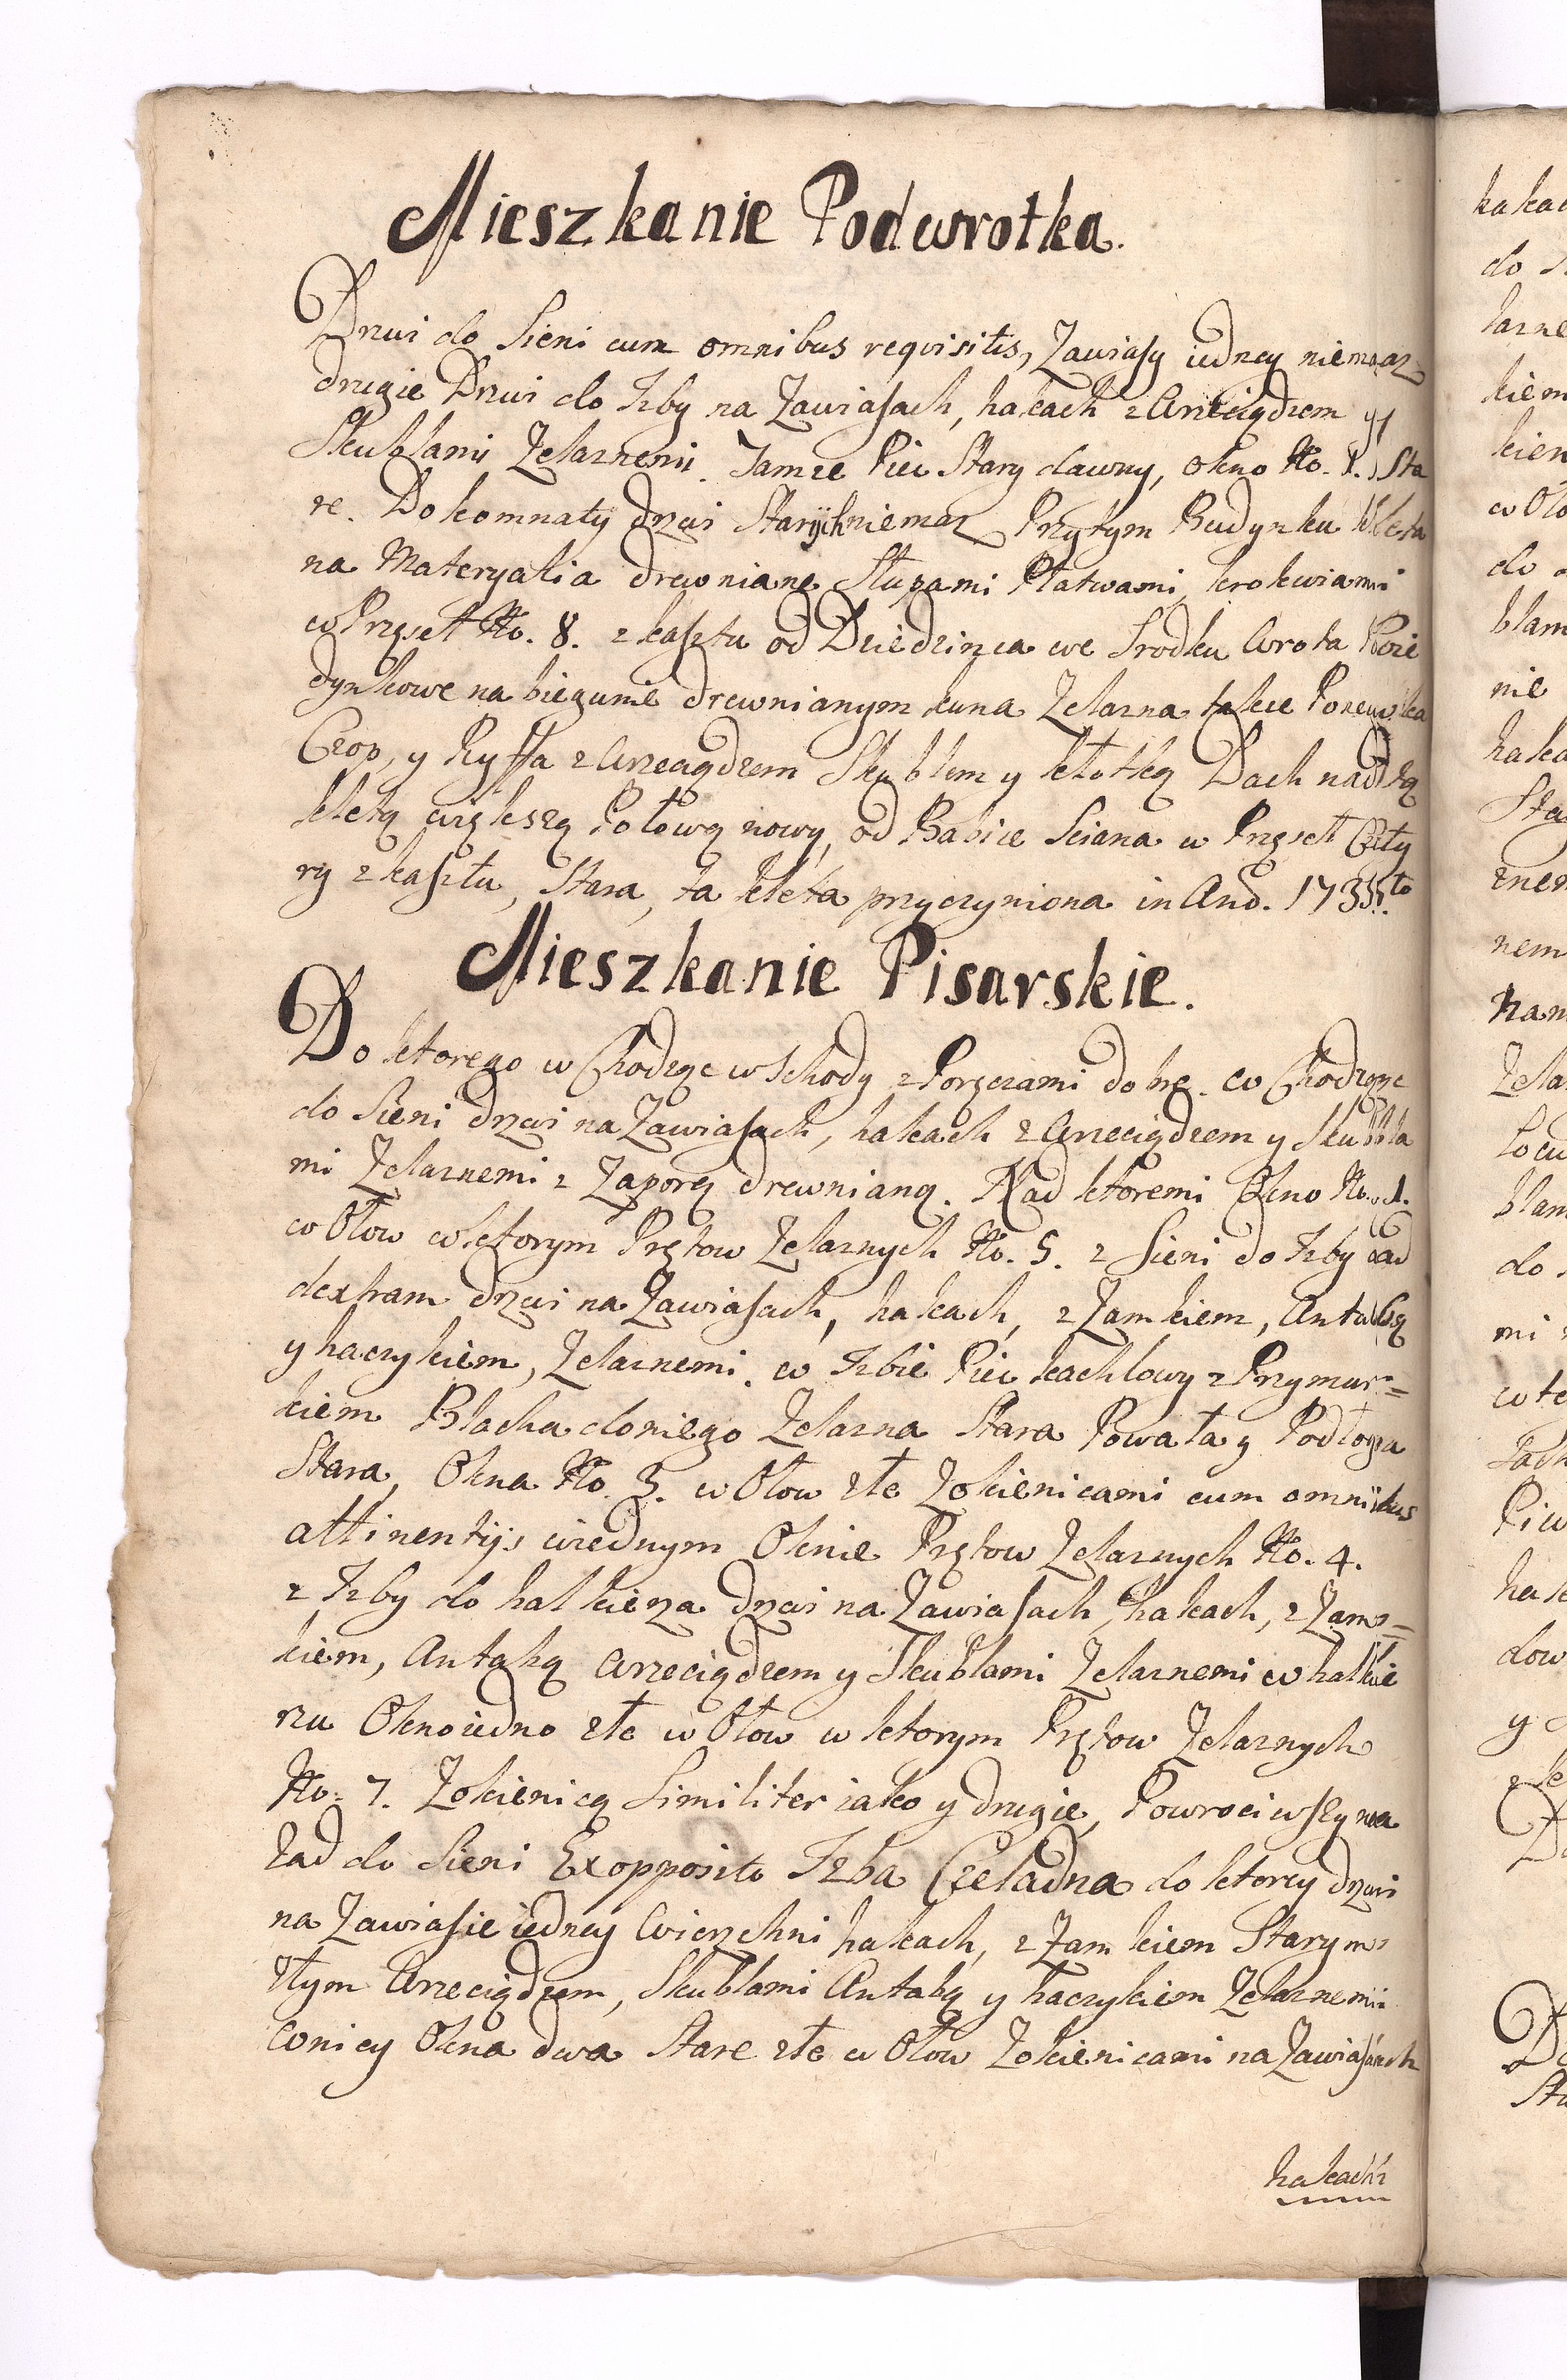 Mieszkanie Podwrotka.
Drzwi do Sieni cum omnibus requisitis, Zawiasy iedney niemasz
drugie Drzwi do Izby na Zawiasach, hakach z Wrzeciądzem y
Skublami Zelaznemi. Tamże Piec Stary dawny, okno No. 1. Sta
re. Do komnaty drzwi Starych niemasz Przytym Budynku Kleta
na Materyalia drewniane Słupami Płatwami, krokwiami
w Przęseł No. 8. z kasztu od Dziedzinca we Srodku Wrota Poie
dynkowe na biegunie drewnianym kuna Zelazna także Ponewka
Czop, y Ryffa z Wrzeciądzem Skublem y kłotką Dach nad tą
kletą większą Połową nowy, od Babice Sciana w Przęseł Czty
ry z kasztu, Stara, ta kleta przyczyniona in Ano. 1735.to
Mieszkanie Pisarskie.
Do ktorego w Chodząc w Schody z Poręczami dobre. w Chodząc
do Sieni drzwi na Zawiasach, hakach z Wrzeciądzem y Skubla
mi Zelaznemi z Zaporą drewnianą. Nad ktoremi Okno No. 1.
w Ołow w ktorym Prętow Zelaznych No. 5. z Sieni do Izby ad
dextram drzwi na Zawiasach, hakach, z Zamkiem, Antabą
y haczykiem, Zelaznemi. w Izbie Piec kachlowy z Przymur=
kiem Blacha doniego Zelazna Stara Powała y Podłoga
Stara, Okna No. 3. w Ołow złe Zokienicami cum omnibus
attinentijs wiednym Oknie Prętow Zelaznych No. 4.
z Izby do halkierza drzwi na Zawiasach, hakach, z Zam=
kiem, Antabą Wrzeciądzem y Skublami Zelaznemi w halkie
rzu Okno iedno złe w Ołow w ktorym Prętow Zelaznych
No. 7. Zokienicą Similiter iako y drugie, Powrociwszy na
zad do Sieni Exopposito Izba Czeladna do ktorey drzwi
na Zawiasie iedney Wierzchni hakach, z Zamkiem Starym
złym Wrzeciądzem, Skublami Antabą y haczykiem Zelaznemi
Wniey Okna dwa Stare złe w Ołow Zokienicami na Zawiasach
hakach